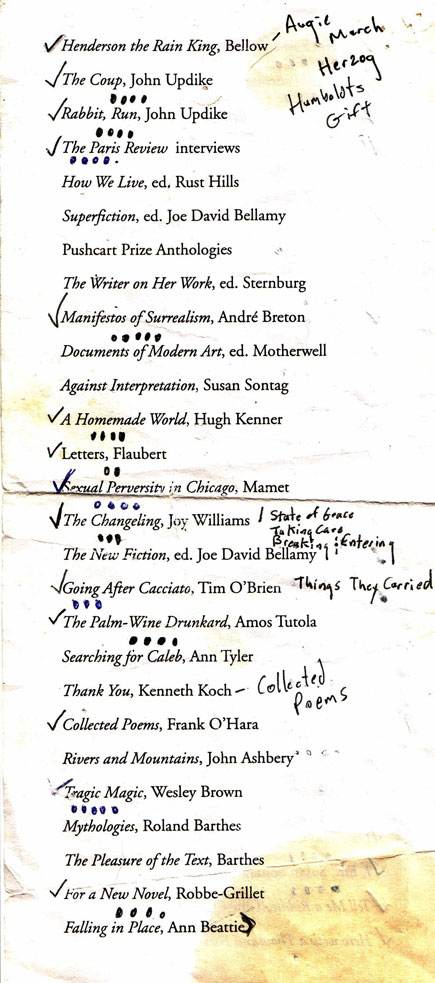 Henderson the Rain King, Bellow
Augie
March
Herzog
Humbolots
Gift
The Coup, John Updike
Rabbit, Run, John Updike
The Paris Review interviews
How We Live, ed. Rust Hills
Superfiction, ed. Joe David Bellamy
Pushcart Prize Anthologies
The Writer on Her Work, ed. Sternburg
Manifestos of Surrealism, André Breton
Documents of Modern Art, ed. Motherwell
Against Interpretation, Susan Sontag
A Homemade World, Hugh Kenner
Letters, Flaubert
Sexual Perversity in Chicago, Mamet
The Changeling, Joy Williams / State of Grace
Taking Care
Breaking & Entering
The New Fiction, ed. Joe David Bellamy
Going After Cacciato, Tim O'Brien Things They Carried
The Palm-Wine Drunkard, Amos Tutola
Searching for Caleb, Ann Tyler
Thank You, Kenneth Koch – Collected
Poems
Collected Poems, Frank O'Hara
Rivers and Mountains, John Ashbery
Tragic Magic, Wesley Brown
Mythologies, Roland Barthes
The Pleasure of the Text, Barthes
For a New Novel, Robbe-Grillet
Falling in Place, Ann Beattie